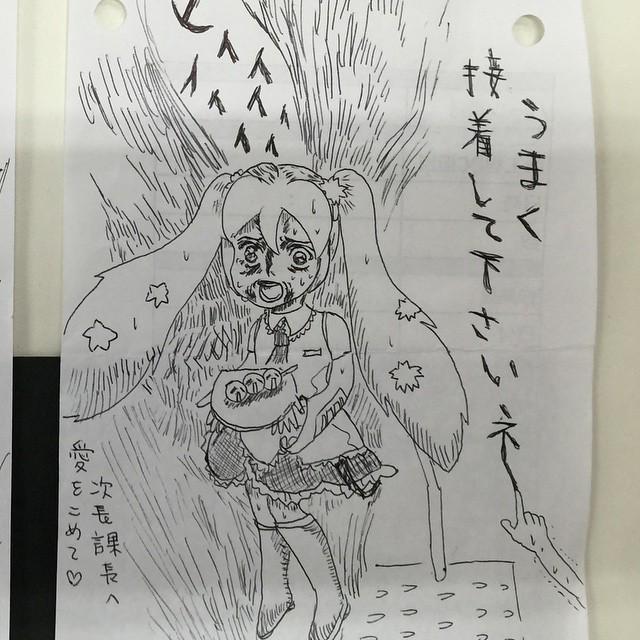 うまく
接着して下さいネ
次長課長へ
愛をこめて♡